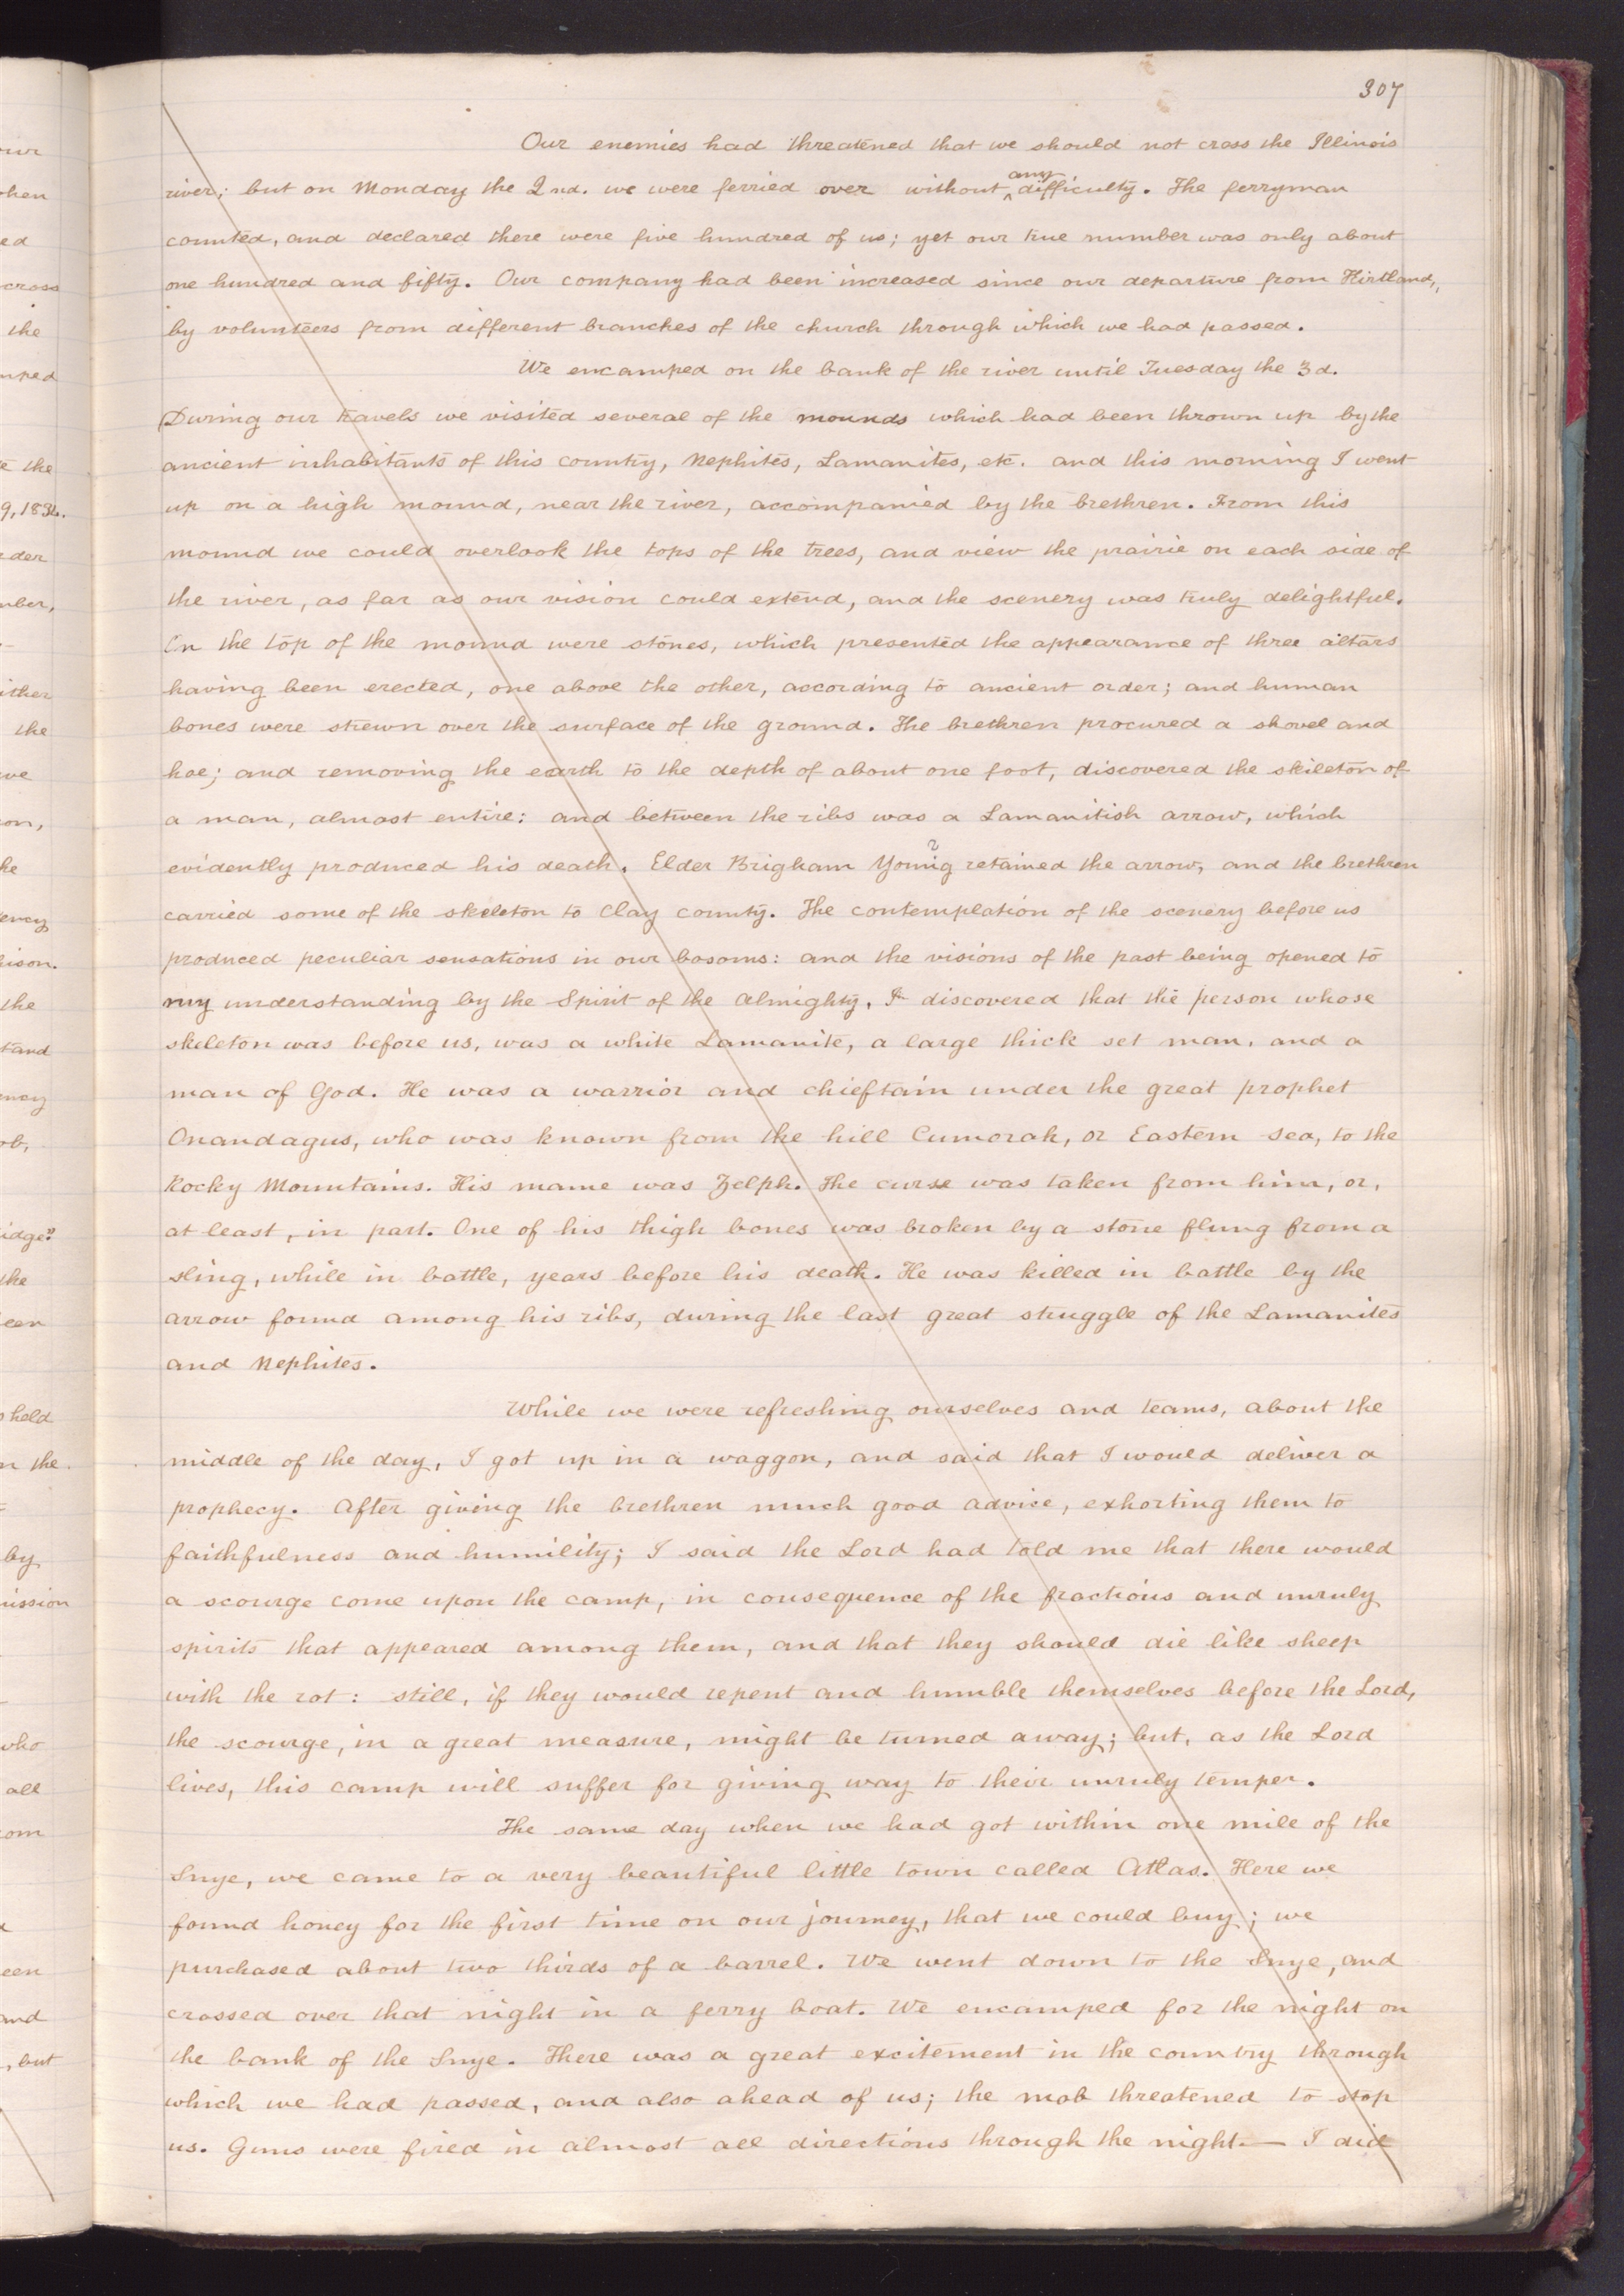 307
Our enemies had threatened that we should not cross the Illinois
river; but on Monday the 2nd. we were ferried over without any difficulty. The ferryman
counted, and declared there were five hundred of us; yet our true number was only about
one hundred and fifty. Our company had been increased since our departure from Kirtland,
by volunteers from different branches of the church through which we had passed.
We encamped on the bank of the river until Tuesday the 3d.
During our travels we visited several of the mounds which had been thrown up by the
ancient inhabitants of this country, Nephites, Lamanites, etc. and this morning I went
up on a high mound, near the river, accompanied by the brethren. From this
mound we could overlook the tops of the trees, and view the prairie on each side of
the river, as far as our vision could extend, and the scenery was truly delightful.
On the top of the mound were stones, which presented the appearance of three altars
having been erected, one above the other, according to ancient order; and human
bones were strewn over the surface of the ground. The brethren procured a shovel and
hoe; and removing the earth to the depth of about one foot, discovered the skileton of
a man, almost entire: and between the ribs was a Lamanitish arrow, which
evidently produced his death. Elder Brigham Young retained the arrow, and the brethren
carried some of the skeleton to Clay county. The contemplation of the scenery before us
produced peculiar sensations in our bosoms: and the visions of the past being opened to
my understanding by the Spirit of the Almighty, I discovered that the person whose
skeleton was before us, was a white Lamanite, a large thick set man, and a
man of God. He was a warrior and chieftain under the great prophet
Onandagus, who was known from the hill Cumorah, or Eastern sea, to the
Rocky Mountains. His name was Zelph. The curse was taken from him, or,
at least, in part. One of his thigh bones was broken by a stone flung from a
sling, while in battle, years before his death. He was killed in battle by the
arrow found among his ribs, during the last great struggle of the Lamanites
and Nephites.
While we were refreshing ourselves and teams, about the
middle of the day, I got up in a waggon, and said that I would deliver a
prophecy. After giving the brethren much good advice, exhorting them to
faithfulness and humility; I said the Lord had told me that there would
a scourge come upon the camp, in consequence of the fractious and unruly
spirits that appeared among them, and that they should die like sheep
with the rot: still, if they would repent and humble themselves before the Lord,
the scourge, in a great measure, might be turned away; but, as the Lord
lives, this camp will suffer for giving way to their unruly temper.
The same day when we had got within one mile of the
Snye, we came to a very beautiful little town called Atlas. Here we
found honey for the first time on our journey, that we could buy; we
purchased about two thirds of a barrel. We went down to the Snye, and
crossed over that night in a ferry boat. We encamped for the night on
the bank of the Snye. There was a great excitement in the country through
which we had passed, and also ahead of us; the mob threatened to stop
us. Guns were fired in almost all directions through the night.— I did